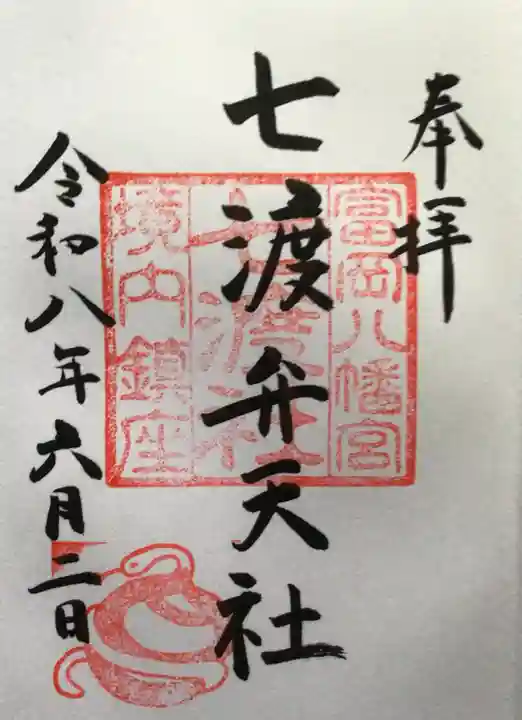 奉拝
七渡弁天社
令和八年六月二日
富岡八幡宮
七渡社
境内鎮座